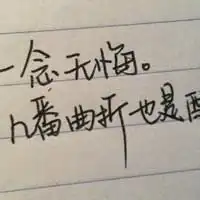 一念无悔。
几番曲折也是酉